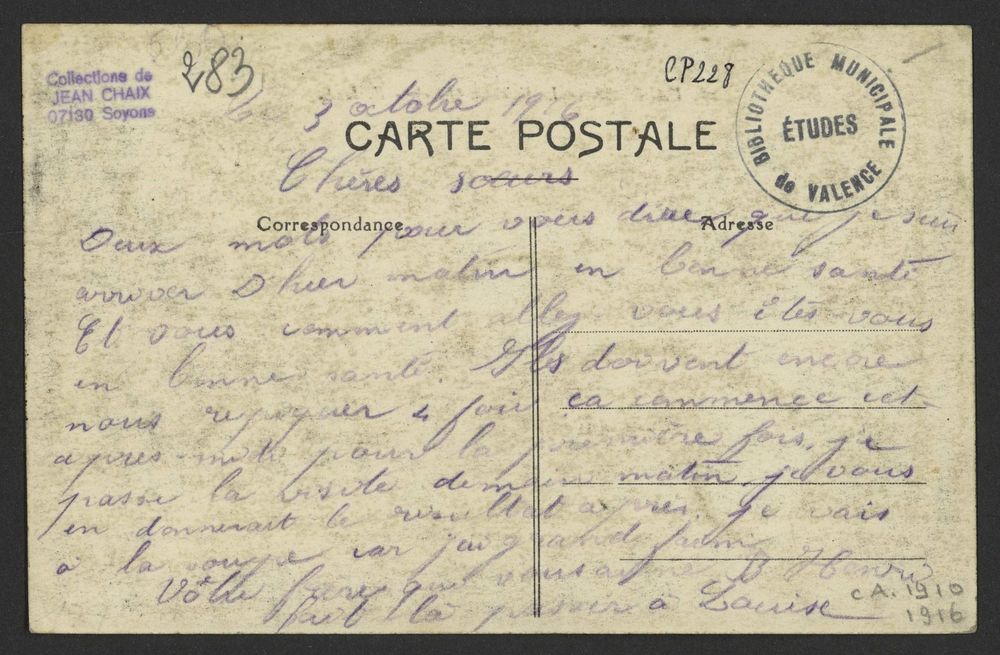 Collections de
JEAN CHAIX
07130 Soyons
283
CP228
BIBLIOTHEQUE MUNICIPALE
ÉTUDES
de VALENCE
Le 3 octobre 1916
CARTE POSTALE
Chères sœurs
Correspondance
Adresse
Deux mots pour vous dire que je suis
arriver D'hier matin en bonne santé
Et vous comment allez vous êtes vous
en bonne santé. Ils doivent encore
nous repiquer 4 fois ça commence cet
après-midi pour la première fois. je
passe la visite demain matin je vous
en donnerait le resultat après. je vais
à la soupe car j'ai grand faim
Vôtre frère qui vous aime Henri
fait là passer à Louise
CA. 1910
1916